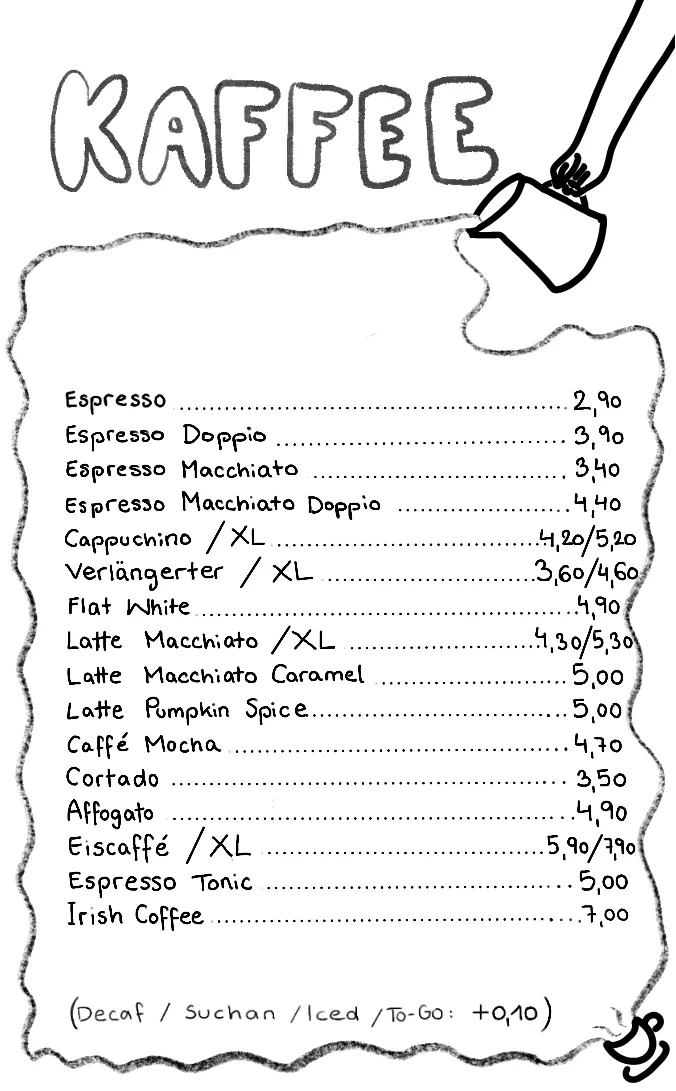 KAFFEE
Espresso ........ 2,90
Espresso Doppio ........ 3,90
Espresso Macchiato ........ 3,40
Espresso Macchiato Doppio ........ 4,40
Cappuchino / XL ........ 4,20/5,20
Verlängerter / XL ........ 3,60/4,60
Flat White ........ 4,90
Latte Macchiato / XL ........ 4,30/5,30
Latte Macchiato Caramel ........ 5,00
Latte Pumpkin Spice ........ 5,00
Caffé Mocha ........ 4,70
Cortado ........ 3,50
Affogato ........ 4,90
Eiscaffé / XL ........ 5,90/7,90
Espresso Tonic ........ 5,00
Irish Coffee ........ 7,00
(Decaf / Suchan / Iced / To-Go: +0,10)